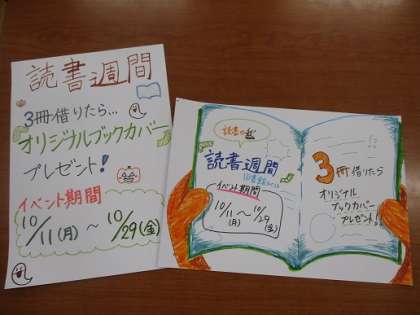 読書週間
3冊借りたら…
オリジナルブックカバー
プレゼント!
イベント期間
10/11(月)～10/29(金)
読書の秋
読書週間
イベント期間
10/11(月)～10/29(金)
3冊借りたら
オリジナル
ブックカバー
プレゼント!!